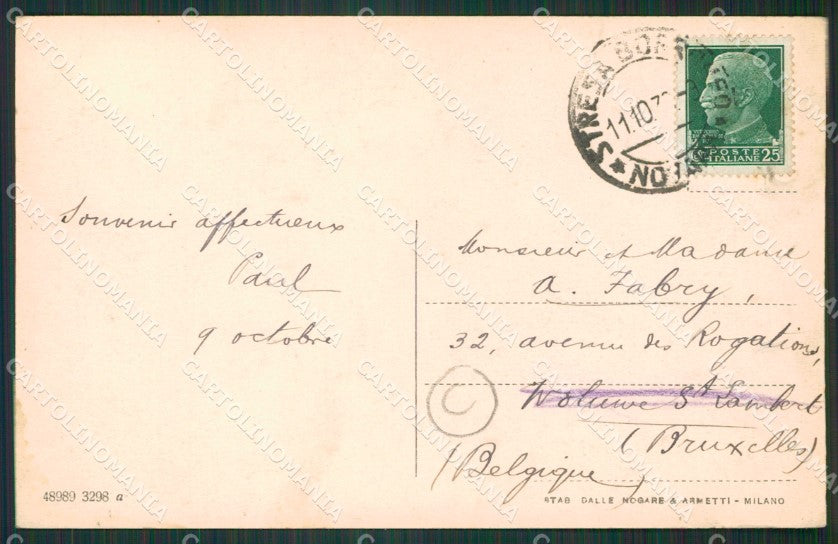 STRESA BORROMEO * 
11.10.3
POSTE
ITALIANE 25
Souvenir affectueux
Paul
9 octobre
Monsieur et Madame
A. Fabry,
32, avenue des Rogations,
Woluwe St Lambert
(Bruxelles)
(Belgique)
48989 3298 a
STAB. DALLE NOGARE & ARMETTI - MILANO
CARTOLINOMANIA